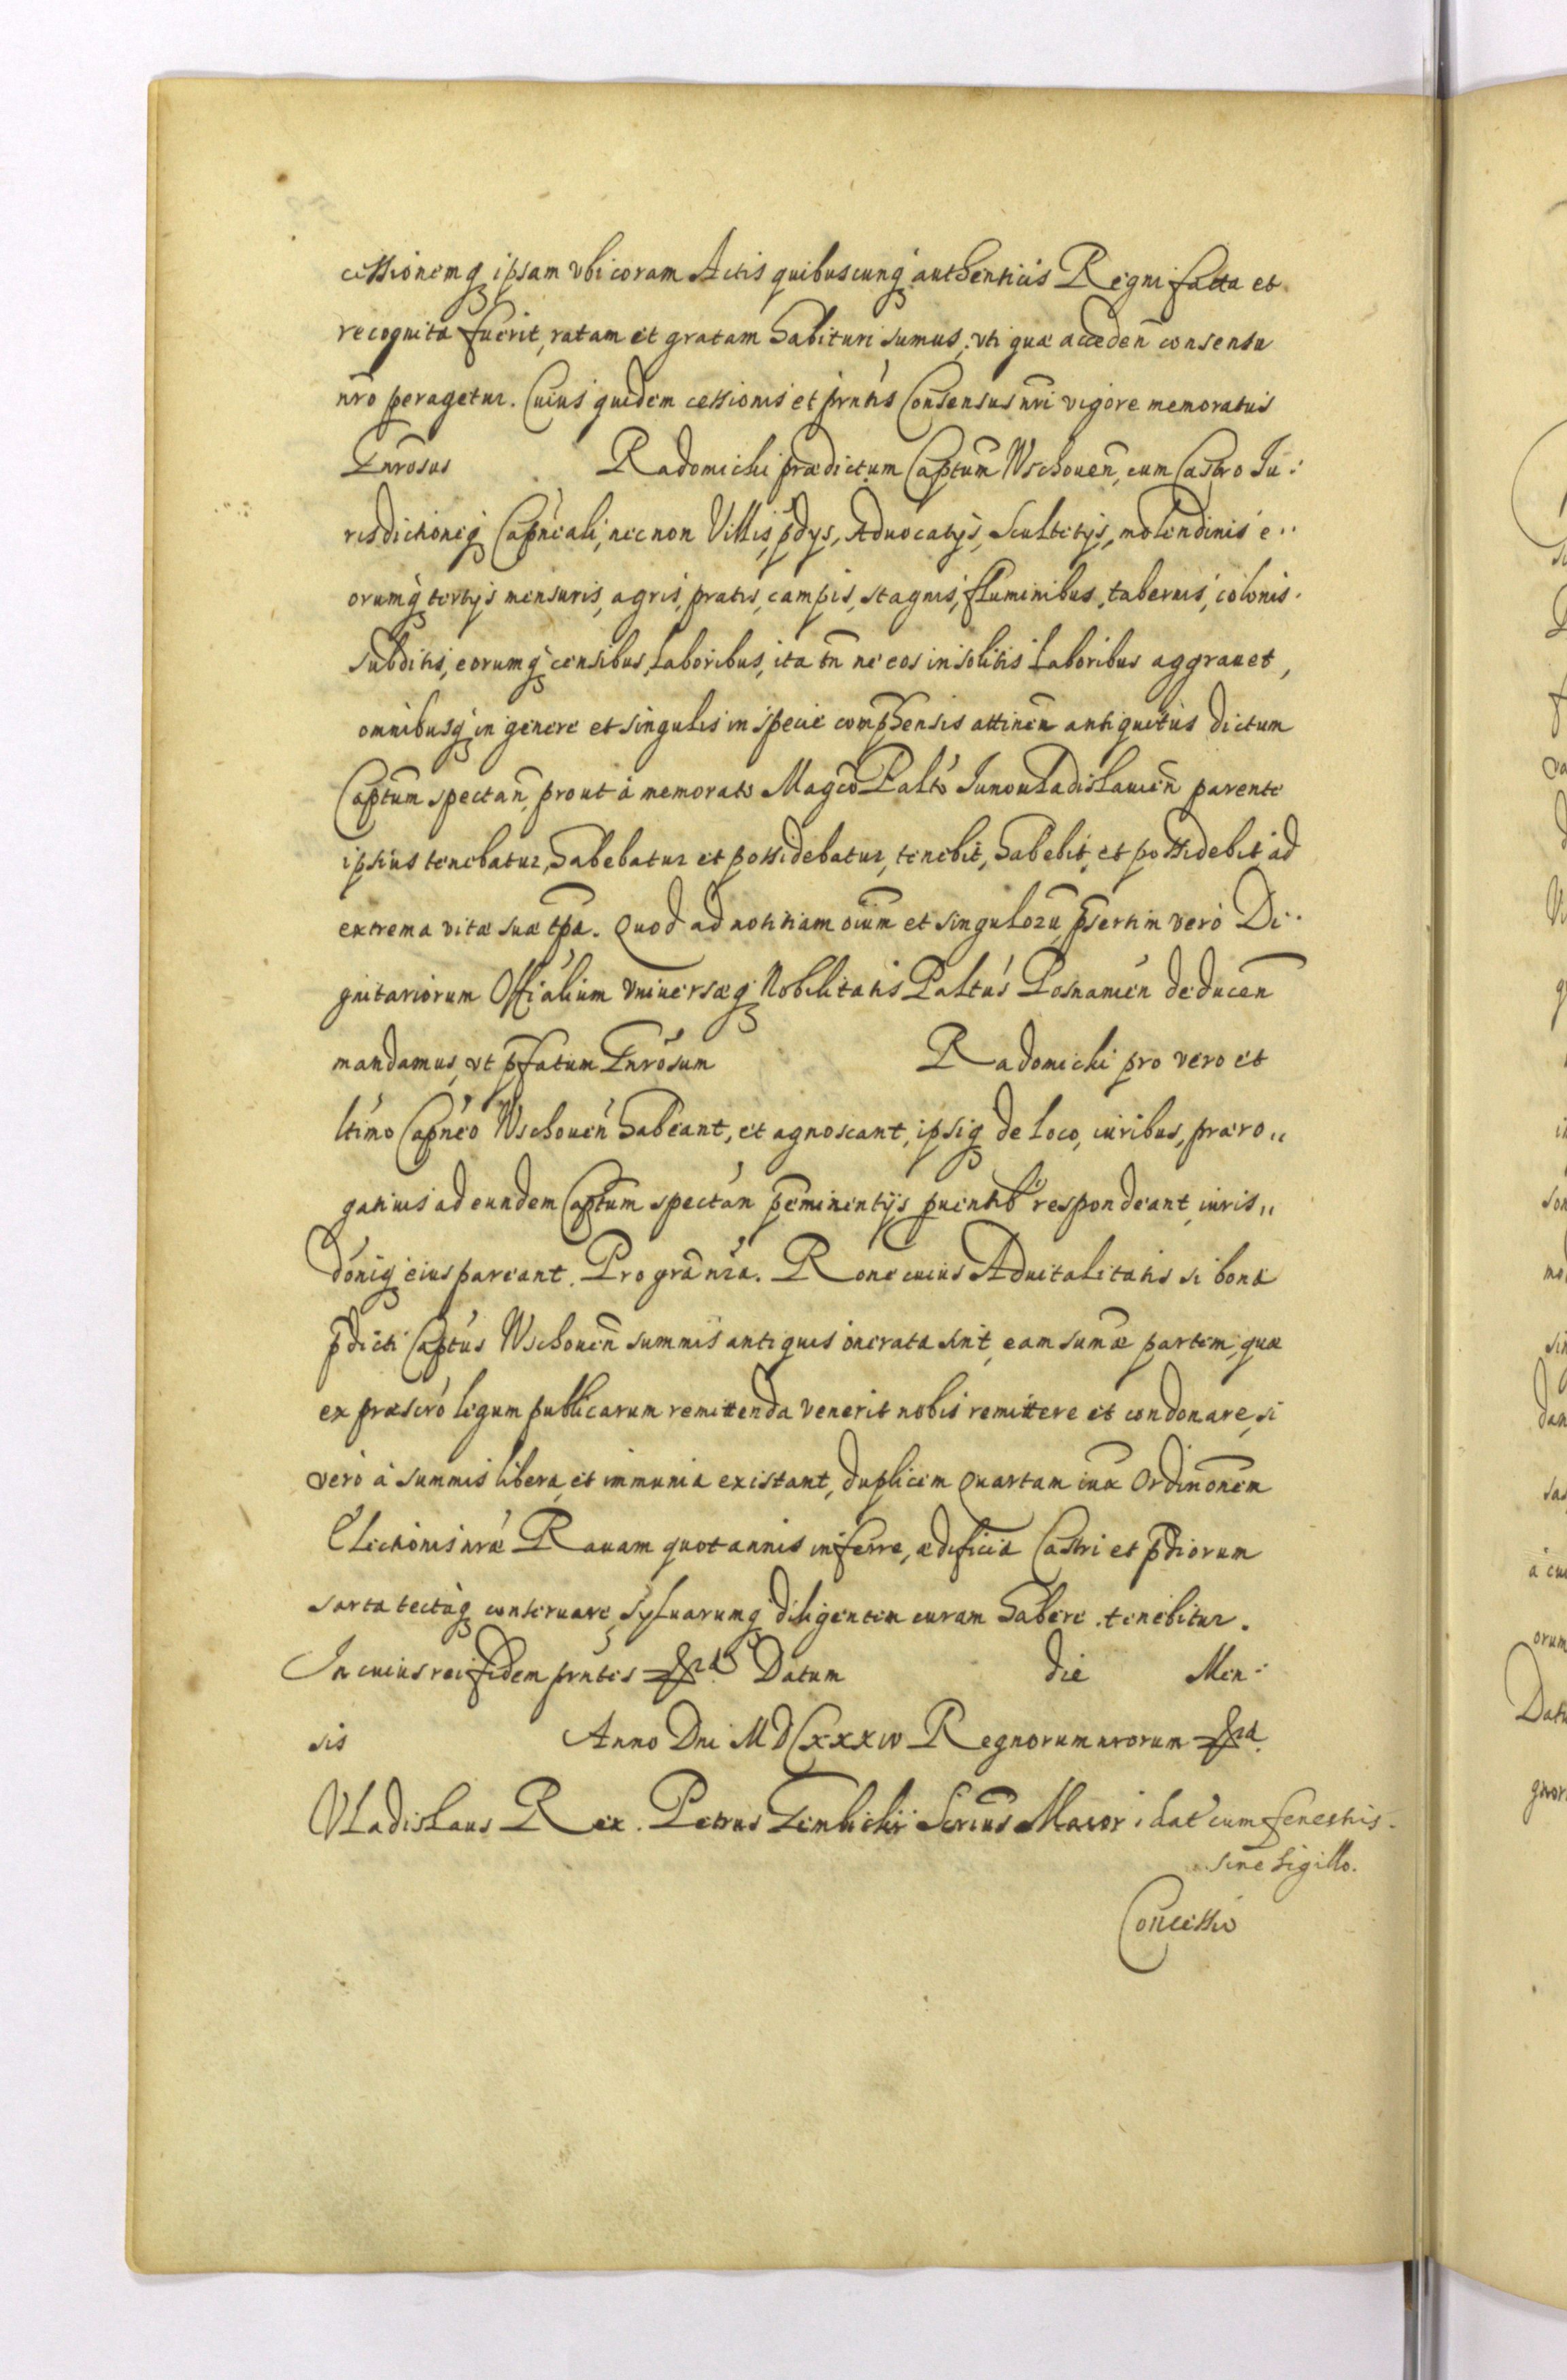 cessionemq ipsam vbi coram Actis quibuscunq authenticis Regni facta et
recognita fuerit, ratam et gratam habituri sumus, vti quæ acceden consensu
nro peragetur. Cuius quidem cessionis et prntis Consensus nri vigore memoratus
Gnrosus Radomicki prædictum Captum Wschouen, cum Castro Iu:
risdictioneq Capneali, nec non Villis, pdys, Aduocatys, Scultetys, molendinis e..
orumq tertys mensuris, agris, pratis, campis, stagnis, fluminibus, tabernis, colonis
subditis, eorumq censibus, laboribus, ita tn ne eos insolitis laboribus aggrauet,
omnibusq in genere et singulis in specie comphensis attinen antiquitùs dictum
Captum spectan, prout à memorato Magco Palto Iunouladislauien parente
ipsius tenebatur, habebatur et possidebatur, tenebit, habebit, et possidebit ad
extrema vitæ suæ tpa. Quod ad notitiam oium et singulorū psertim verò Di..
gnitariorum Offialium vniuersæq Nobilitatis Paltus Posnanien deducen
mandamus, vt pfatum Gnrosum Radomicki pro vero et
ltimo Capneo Wschouen habeant, et agnoscant, ipsiq de loco, iuribus, præro,,
gatiuis ad eundem Captum spectan peminentijs puentib respondeant, iuris,,
dóniq eius pareant. Pro gra nra. Rone cuius Aduitalitatis si bona
pdicti Captus Wschouen summis antiquis onerata sint, eam sumæ partem, quæ
ex præscro legum publicarum remittenda venerit nobis remittere et condonare, si
verò à summis libera, et immunia existant, duplicem Quartam iuxa Ordinonem
Electionis nræ Rauam quotannis inferre, ædificia Castri et pdiorum
sarta tectaq conseruare, syluarumq diligentem curam habere tenebitur.
In cuius rei fidem prntes &ra Datum die Men:
sis Anno Dni MDCXXXIV Regnorum nrorum &ra.
Vladislaus Rex. Petrus Gembicki Secrius Maior. dat cum fenestris.
sine sigillo.
Concessio